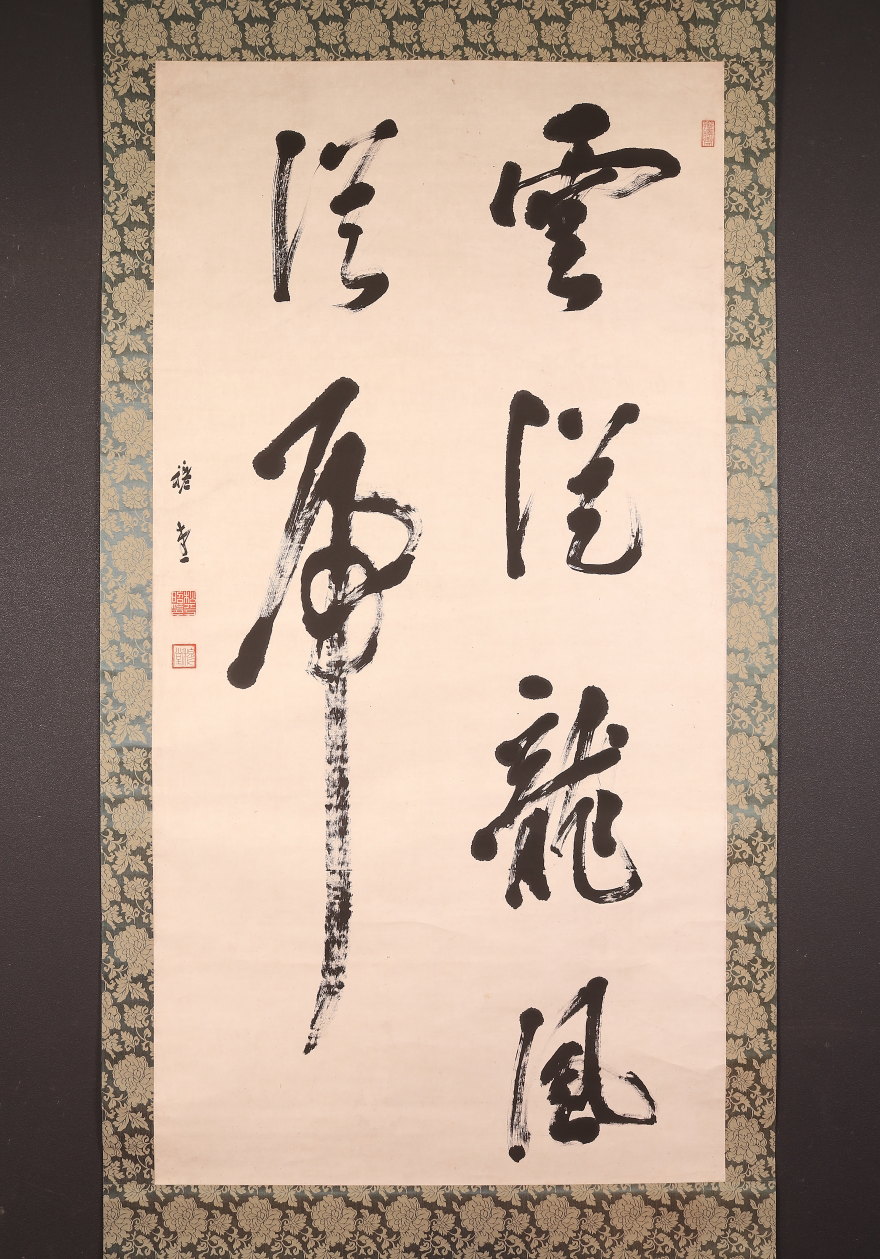 雲従龍風
従虎